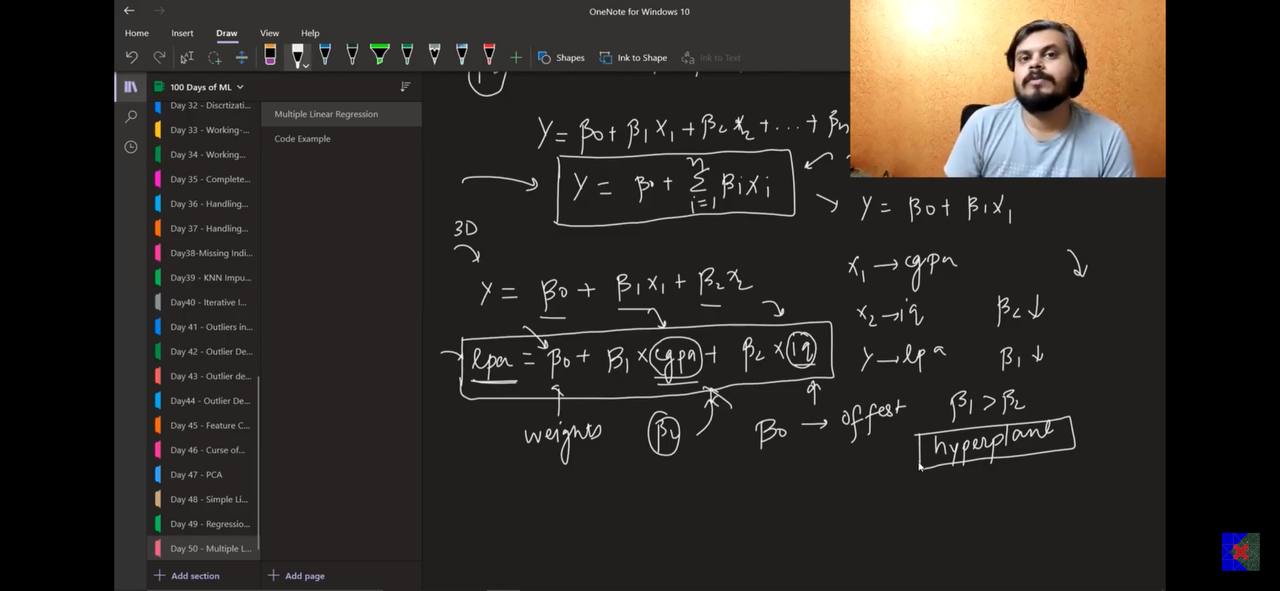 OneNote for Windows 10
Home Insert Draw View Help
Shapes Ink to Shape Ink to Text
100 Days of ML
Day 32 - Discrtizati...
Day 33 - Working-...
Day 34 - Working...
Day 35 - Complete...
Day 36 - Handling...
Day 37 - Handling...
Day38-Missing Indi...
Day39 - KNN Impu...
Day40 - Iterative I...
Day 41 - Outliers in...
Day 42 - Outlier De...
Day 43 - Outlier de...
Day44 - Outlier De...
Day 45 - Feature C...
Day 46 - Curse of...
Day 47 - PCA
Day 48 - Simple Li...
Day 49 - Regressio...
Day 50 - Multiple L...
+ Add section
Multiple Linear Regression
Code Example
+ Add page
Y = β0 + β1 X1 + β2 X2 + ... + βn
Y = β0 + n Σ i=1 βi xi
Y = β0 + β1 X1
3D
Y = β0 + β1 x1 + β2 x2
lpa = β0 + β1 × cgpa + β2 × iq
weights
β2
β0 → offest
x1 → cgpa
x2 → iq β2 ↓
y → lpa β1 ↓
β1 > β2
hyperplane